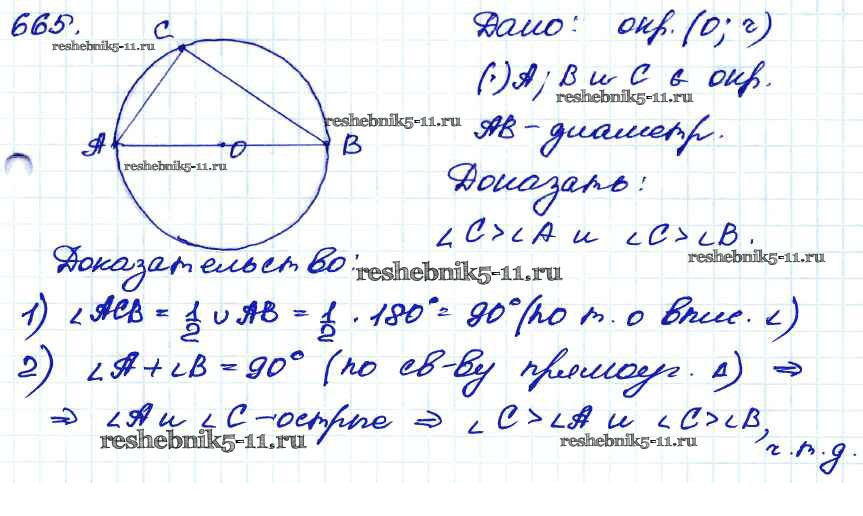 665.
C
reshebnik5-11.ru
Дано: окр. (О; r)
(·) A; B и C ∈ окр.
reshebnik5-11.ru
reshebnik5-11.ru
AB - диаметр.
A
O
B
reshebnik5-11.ru
Доказать:
∠C > ∠A и ∠C > ∠B.
reshebnik5-11.ru
Доказательство:
reshebnik5-11.ru
1) ∠ACB = 1/2 ∪ AB = 1/2 · 180° = 90° (по т. о впис. ∠)
2) ∠A + ∠B = 90° (по св-ву прямоуг. Δ) ⇒
⇒ ∠A и ∠C - острые ⇒ ∠C > ∠A и ∠C > ∠B,
reshebnik5-11.ru
reshebnik5-11.ru
ч.т.д.